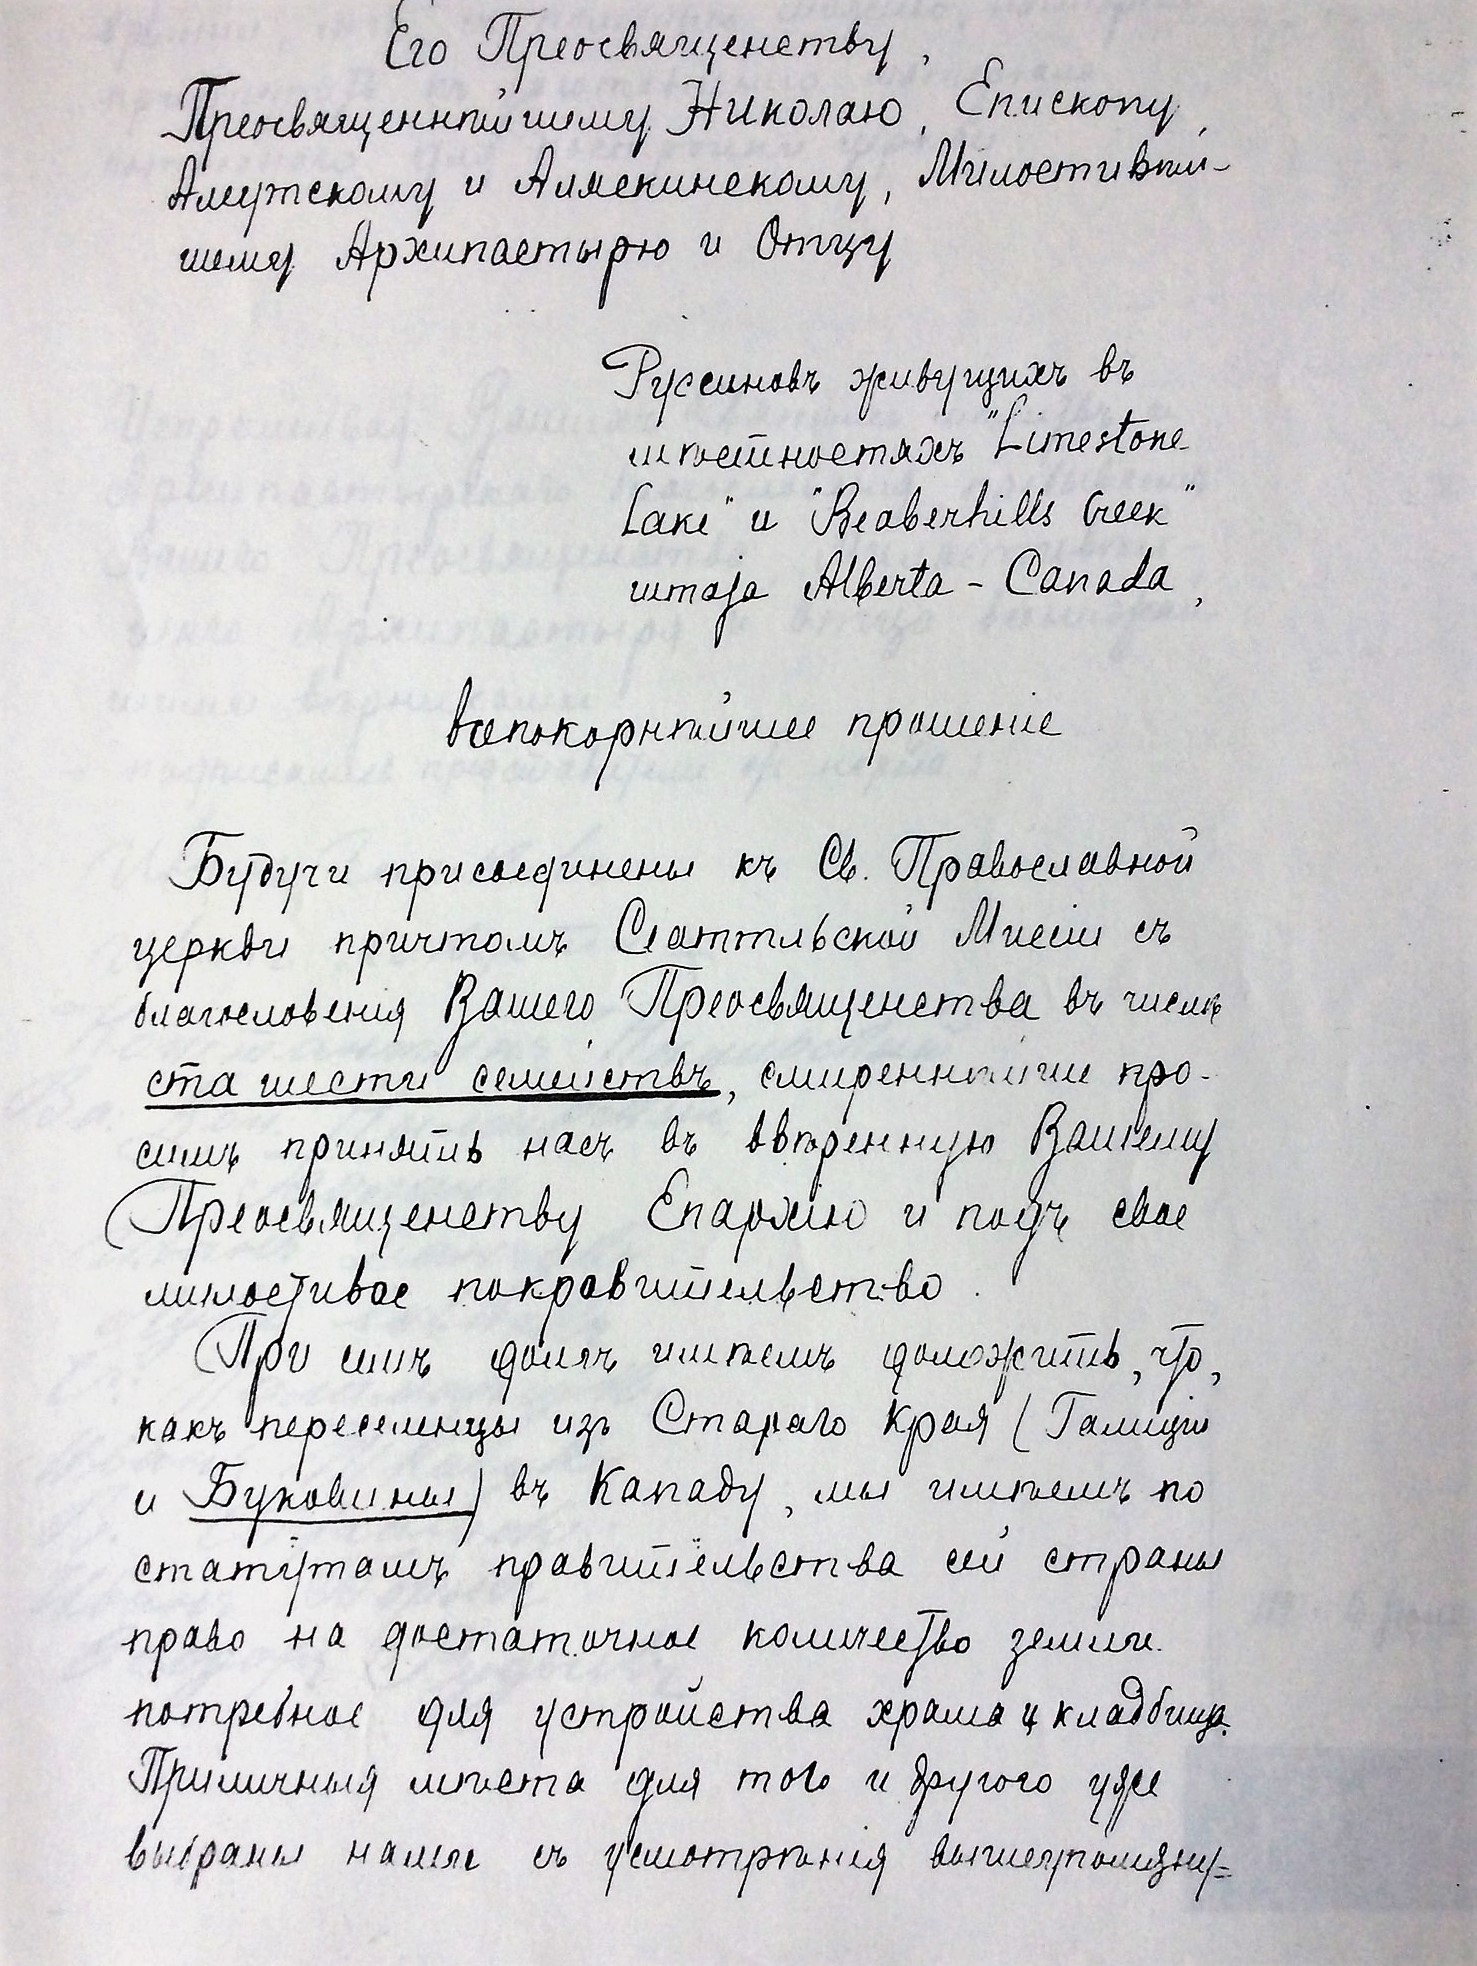 Его Преосвященству,
Преосвященнѣйшему Николаю, Епископу
Алеутскому и Аляскинскому, Милостивѣй-
шему Архипастырю и Отцу
Руссиновъ живущихъ въ
мѣстностяхъ "Limestone
Lake" и "Beaberhills Creek"
штата Alberta - Canada,
всепокорнѣйшее прошеніе
Будучи присоединены къ Св. Православной
церкви причтомъ Сеаттльской Миссіи съ
благословенія Вашего Преосвященства въ числѣ
ста шести семействъ, смиреннѣйше про-
симъ принять насъ въ ввѣренную Вашему
Преосвященству Епархію и подъ свое
милостивое покровительство.
При семъ долгъ имѣемъ доложить, что,
какъ переселенцы изъ Стараго Края (Галиціи
и Буковины) въ Канаду, мы имѣемъ по
статутамъ правительства сей страны
право на достаточное количество земли
потребное для устройства храма и кладбища.
Приличныя мѣста для того и другого уже
выбраны нами съ усмотрѣнія вышеупомяну=